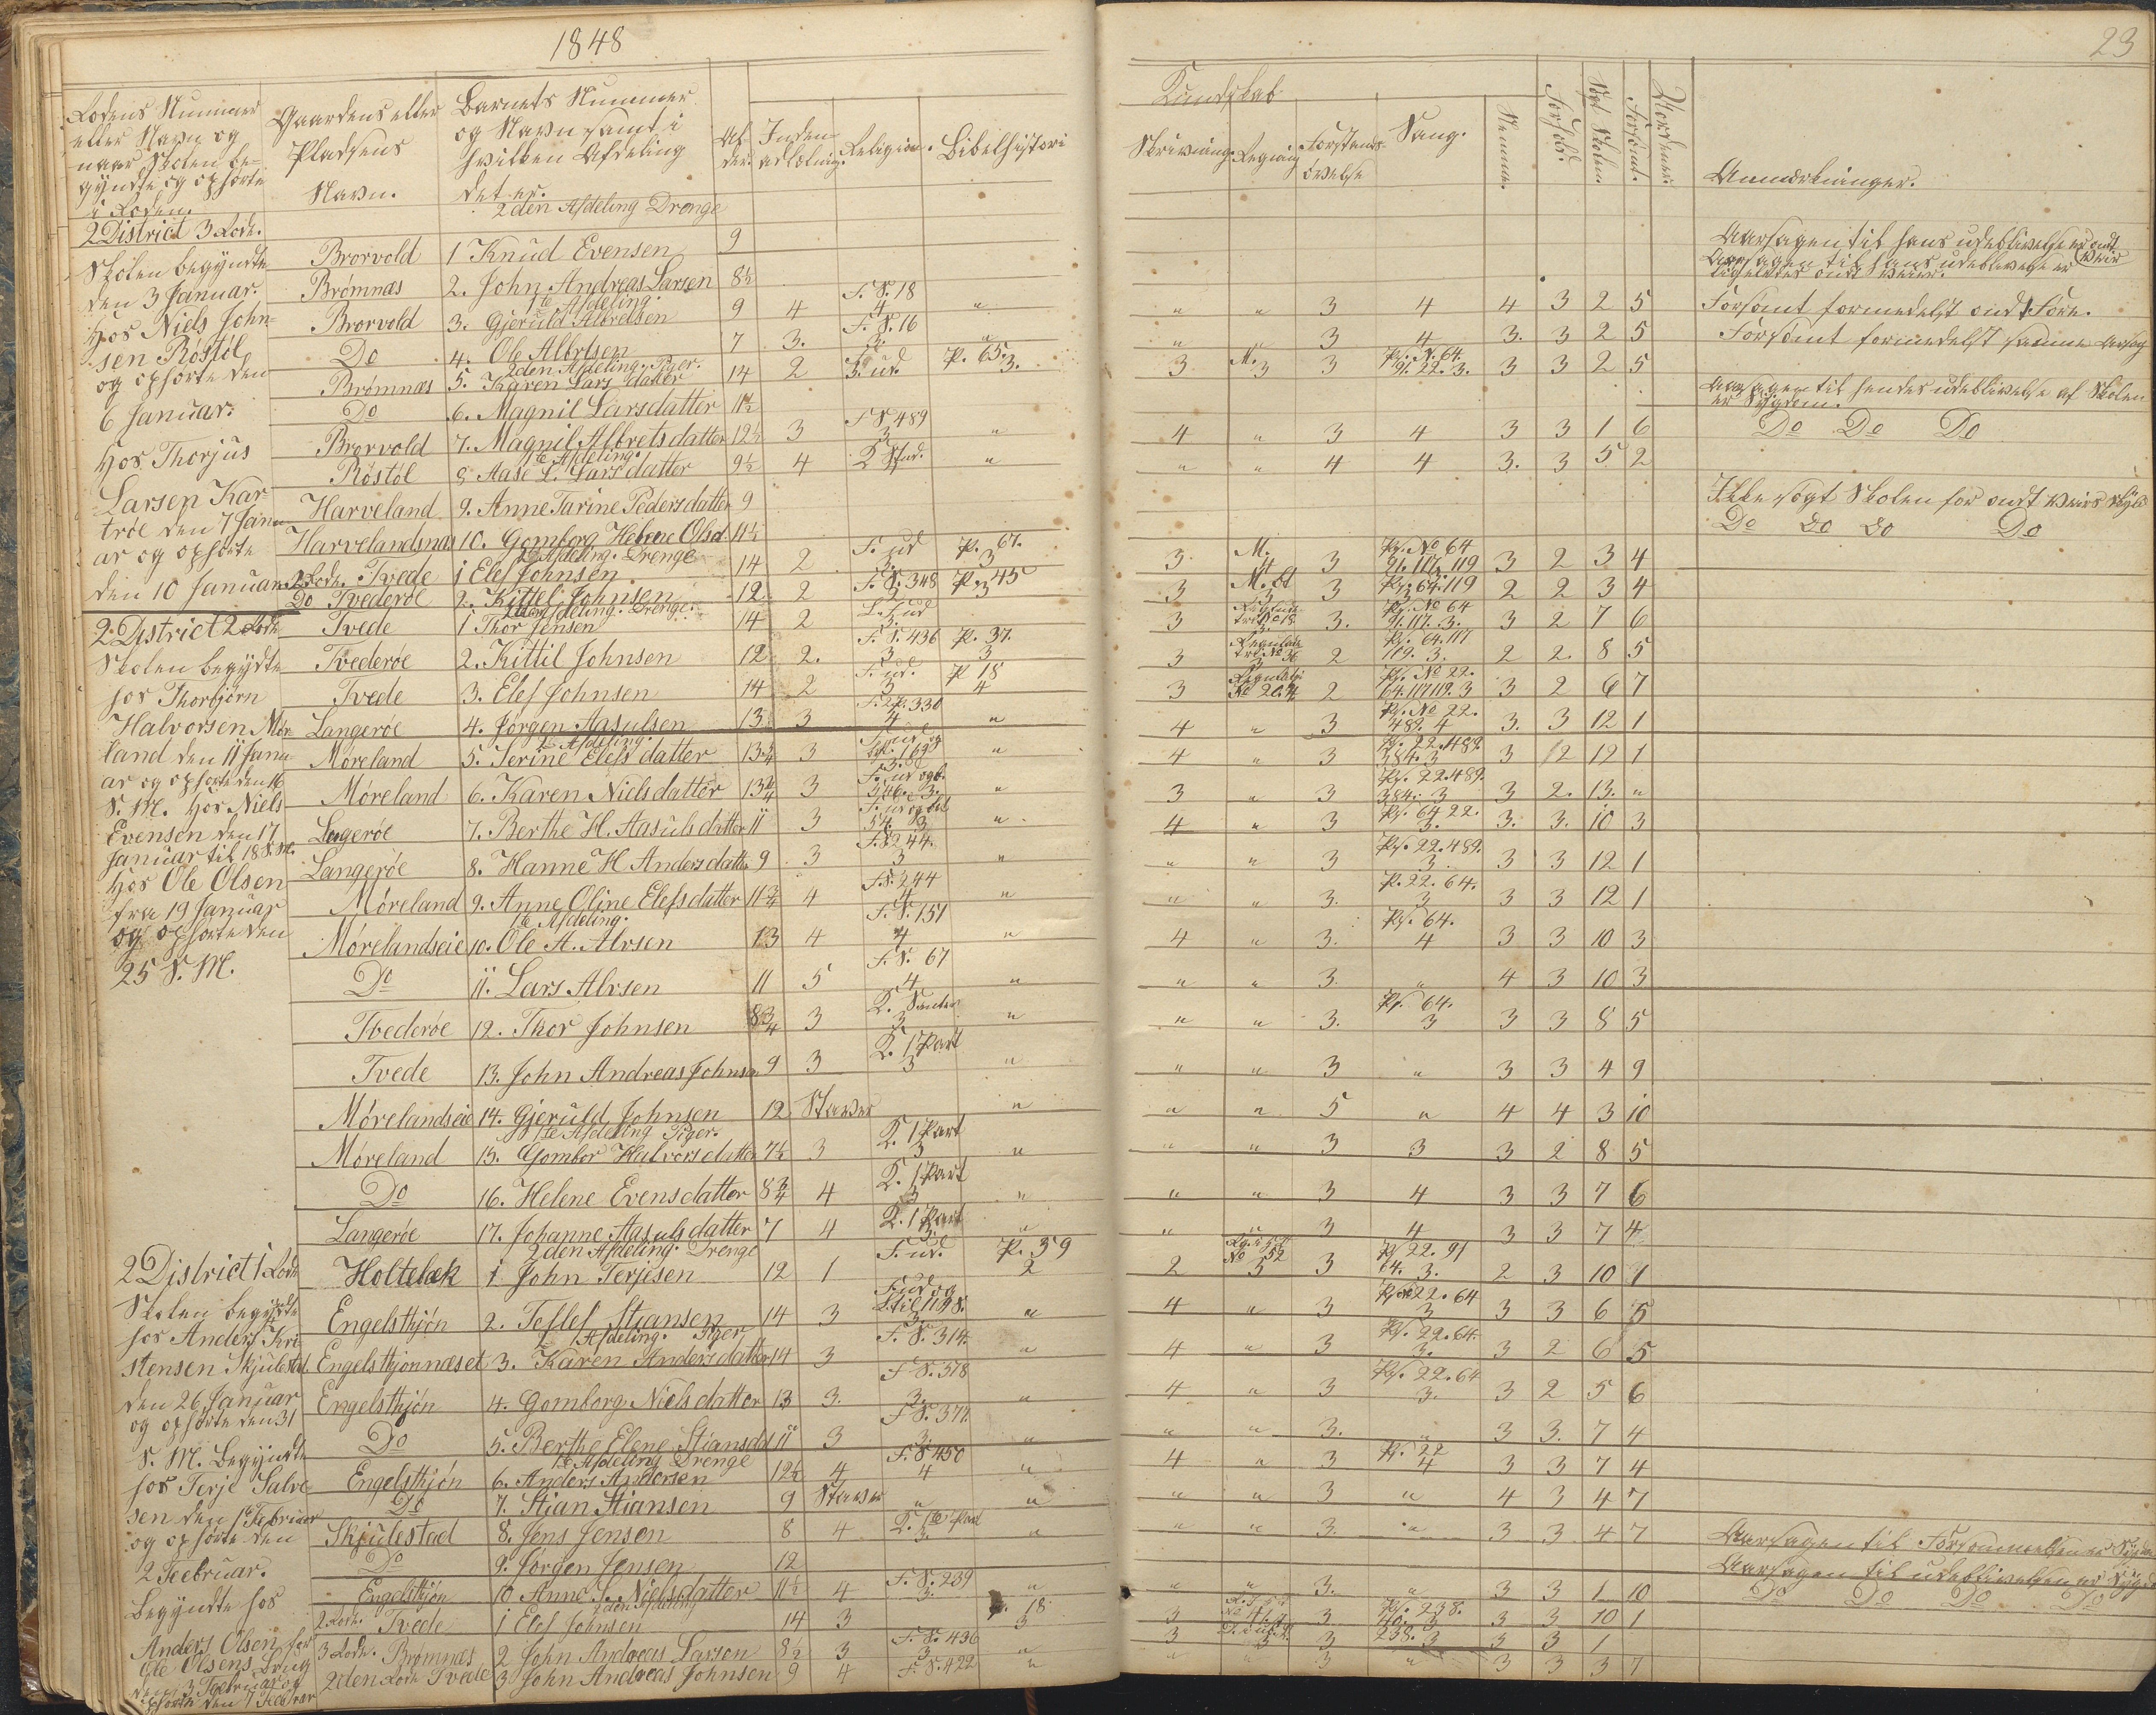 1848
23
Rodens Nummer eller Navn og naar Skolen begyndte og ophørte i Roden.
Gaardens eller Pladsens Navn.
Barnets Nummer og Navn samt i hvilken Afdeling det er.
Alder.
Indenadlæsning.
Religion.
Bibelhistori
Kundskab
Skrivning.
Regning
Forstandsøvelse
Sang.
Nemme.
Forhold.
Søgt Skolen.
Forsømt.
Anmærkninger.
2 District 3 Rode.
Skolen begyndte
den 3 Januar.
hos Niels John-
sen Röstöl
og ophørte den
6 Januar.
hos Thorjus
Larsen Kar-
tröe den 7 Janu-
ar og ophørte
den 10 Januar
2den Afdeling Drenge
Brorvold 1 Knud Evensen 9
Brømnas 2. John Andreas Larsen 8½
1te Afdeling.
Brorvold 3. Gjeruld Albretsen 9 4 F. S. 18 4 " " " 3 4 4 3 2 5 Forsømt formedelst ondt Føre.
Do 4. Ole Albretsen 7 3. F. S. 16 3. " " " 3 4 3. 3 2 5 Forsømt formedelst samme Aarsag
2den Afdeling. Piger.
Brømnas 5. Karen Lars datter 14 2 F. ud. 3. P. 65. 3. 3 M. 3 3 Ps. N. 64. 91. 22. 3. 3 3 2 5
Do 6. Magnil Larsdatter 11½ Aarsagen til hendes udeblivelse af Skolen er Sygdom.
Brorvold 7. Magnil Albretsdatter 12½ 3 F S 489 3 " 4 " 3 4 3 3 1 6 Do Do Do
1te Afdeling.
Röstöl 8 Aase L. Larsdatter 9½ 4 " " " 4 4 3. 3 5 2
Harveland 9. Anne Tarine Pedersdatter 9 Ikke søgt Skolen for ondt Veirs Skyld
Harvelandsnas 10. Gomborg Helene Olsd. 11½ Do Do Do Do
2den Afdeling. Drenge
2 Rode. Tvede 1 Elef Johnsen 14 2 F. ud 3. P. 67. 3 3. M. 4 3 Ps. No 64 91. 117. 119 3 2 3 4
Do Tvederöe 2. Kittel Johnsen 12 2 F. S. 348 3 P. 45 3 3 M. 3 3 Ps. 64. 119 2 2 3 4
2 District 2 Rode
Skolen begyndte
hos Thorbjörn
Halvorsen Mör-
land den 11 Janu-
ar og ophørte den 16
S. M. hos Niels
Evensen den 17
Januar til 18 S. M.
hos Ole Olsen
fra 19 Januar
og ophørte den
25 S. M.
2den Afdeling. Drenge.
Tvede 1 Thor Jensen 14 2 3. 3 3. Ps. No 64 91. 117. 3. 3 2 7 6
Tvederöe 2. Kittil Johnsen 12 2. F. S. 436 3 P. 37. 3 3 2 Ps. 64. 117 109. 3. 2 2. 8 5
Tvede 3. Elef Johnsen 14 2 F. ud. 3 P 18 4 3 No 20. 4 2 Ps. No 22. 64. 117 119. 3 3 2 6 7
Langeröe 4. Jörgen Aasulsen 13½ 3 4 " 4 " 3 Ps. No 22. 489. 4 3. 3 12 1
Möreland 5. Serine Elefs datter 13¾ 3 3. " 4 " 3 Ps. 22. 489. 384. 3 3 2 12 1
Möreland 6. Karen Nielsdatter 13¾ 3 3. " 3 " 3 Ps. 22. 489. 384. 3 3 2. 13. "
Langeröe 7. Berthe H. Aasulsdatter 11 3 3 " 4 " 3 Ps. 64 22. 3. 3. 3. 10 3
Langeröe 8. Hanne H. Andersdatter 9 3 F. S 244. 3 " " " 3 Ps. 22. 489. 3. 3 3 12 1
Möreland 9. Anne Oline Elefsdatter 11¾ 4 F. S. 244 4 " " " 3. P. 22. 64. 3 3 3 12 1
1te Afdeling.
Mörelandseie 10. Ole A. Alvsen 13 4 F. S. 151 4 " 4 " 3. Ps. 64. 4 3 3 10 3
Do 11. Lars Alvsen 11 5 F. S. 67 4 " " " 3. " 4 3 10 3
Tvederöe 12. Thor Johnsen 8¾ 3 3 " " " 3. Ps. 64. 3 3 3 8 5
Tvede 13. John Andreas Johnsen 9 3 K. 1 Part 3 " " " 3 " 3 3 4 9
Mörelandseie 14. Gjeruld Johnsen 12 Staver " " " 5 " 4 4 3 10
1te Afdeling Piger.
Möreland 15. Gombor Halvorsdatter 7½ 3 K. 1 Part 3 " " " 3 3 3 2 8 5
Do 16. Helene Evensdatter 8¾ 4 K. 1 Part 3 " " " 3 4 3 3 7 6
Langeröe 17. Johanne Aasulsdatter 7 4 K. 1 Part 3. " " " 3 4 3 3 7 4
2 District 1 Rode
Skolen begyndte
hos Anders Kri-
stensen Skjulestad
den 26 Januar
og ophørte den 31
S. M. Begyndte
hos Terje Salve-
sen den 1 Februar
og ophørte den
2 Feebruar.
Begyndte hos
Anders Olsen for
Ole Olsens Brug
den 3 Febrauar og
ophørte den 7 Februar
2den Afdeling. Drenge
Holtebek 1 John Terjesen 12 1 F. ud. P. 59 2 2 No 52 5 3 Ps 22. 91 64. 3. 2 3 10 1
Engelsthjön 2. Tellef Stiansen 14 3 F. ud og til 1198. 3. " 4 " 3 Ps. 22. 64 3 3 3 6 5
Afdeling. Piger
Engelsthjonnæset 3. Karen Andersdatter 14 3 F. S. 314. " 4 " 3 Ps. 22. 64. 3. 3 2 6 5
Engelsthjön 4. Gomborg Nielsdatter 13 3. F S. 378 3. " 4 " 3 Ps. 22. 64 3. 3 2 5 6
Do 5. Berthe Elene Stiansdd 11 3 F S. 377. 3. " " " 3. " 3 3. 7 4
1te Afdeling Drenge
Engelsthjón 6. Anders Andersen 12½ 4 F. S 450 4 " 4 " 3 Ps. 22 4 3 3 7 4
Do 7. Stian Stiansen 9 Staver " " " " 3 " 4 3 4 7
Skjulestad 8. Jens Jensen 8 4 K. 1te Part 3. " " " 3. " 3 3 4 7 Aarsagen til Forsømmelsen er
Do 9. Jörgen Jensen 12 Aarsagen til udeblivelsen er
Engelsthjön 10 Anne S. Nielsdatter 11½ 4 F. S. 239 3. " " " 3. " 3 3 1 10 Do Do Do Do
2den Afdeling
2 Rode. Tvede 1 Elef Johnsen 14 3 P. 18 3 3 3 Ps. 238. 40. 3 3 3 10 1
3 Rode. Brømnas 2 John Andreas Larson 8½ 3 F. S. 436 3. " 3 3 3 238. 3 3 3 1
2den Rode Tvede 3 John Andreas Johnsen 9 4 F. S. 422 " " " 3 " 3 3 3 7